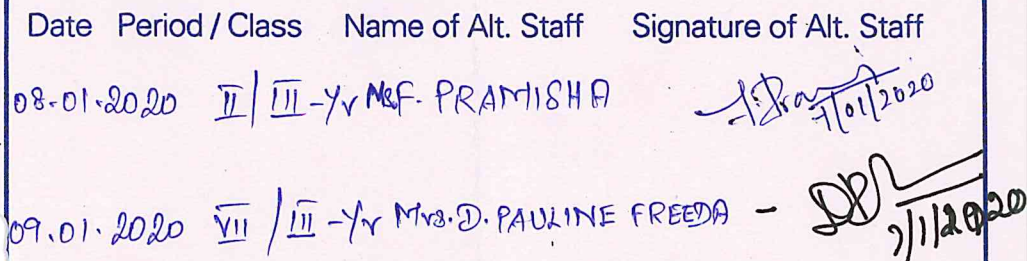 Date Period / Class Name of Alt. Staff Signature of Alt. Staff
08.01.2020 II / III -Yr Ms.F. PRAMISHA 7/01/2020
09.01.2020 VII / III -Yr Mrs.D. PAULINE FREEDA - DP 7/1/2020